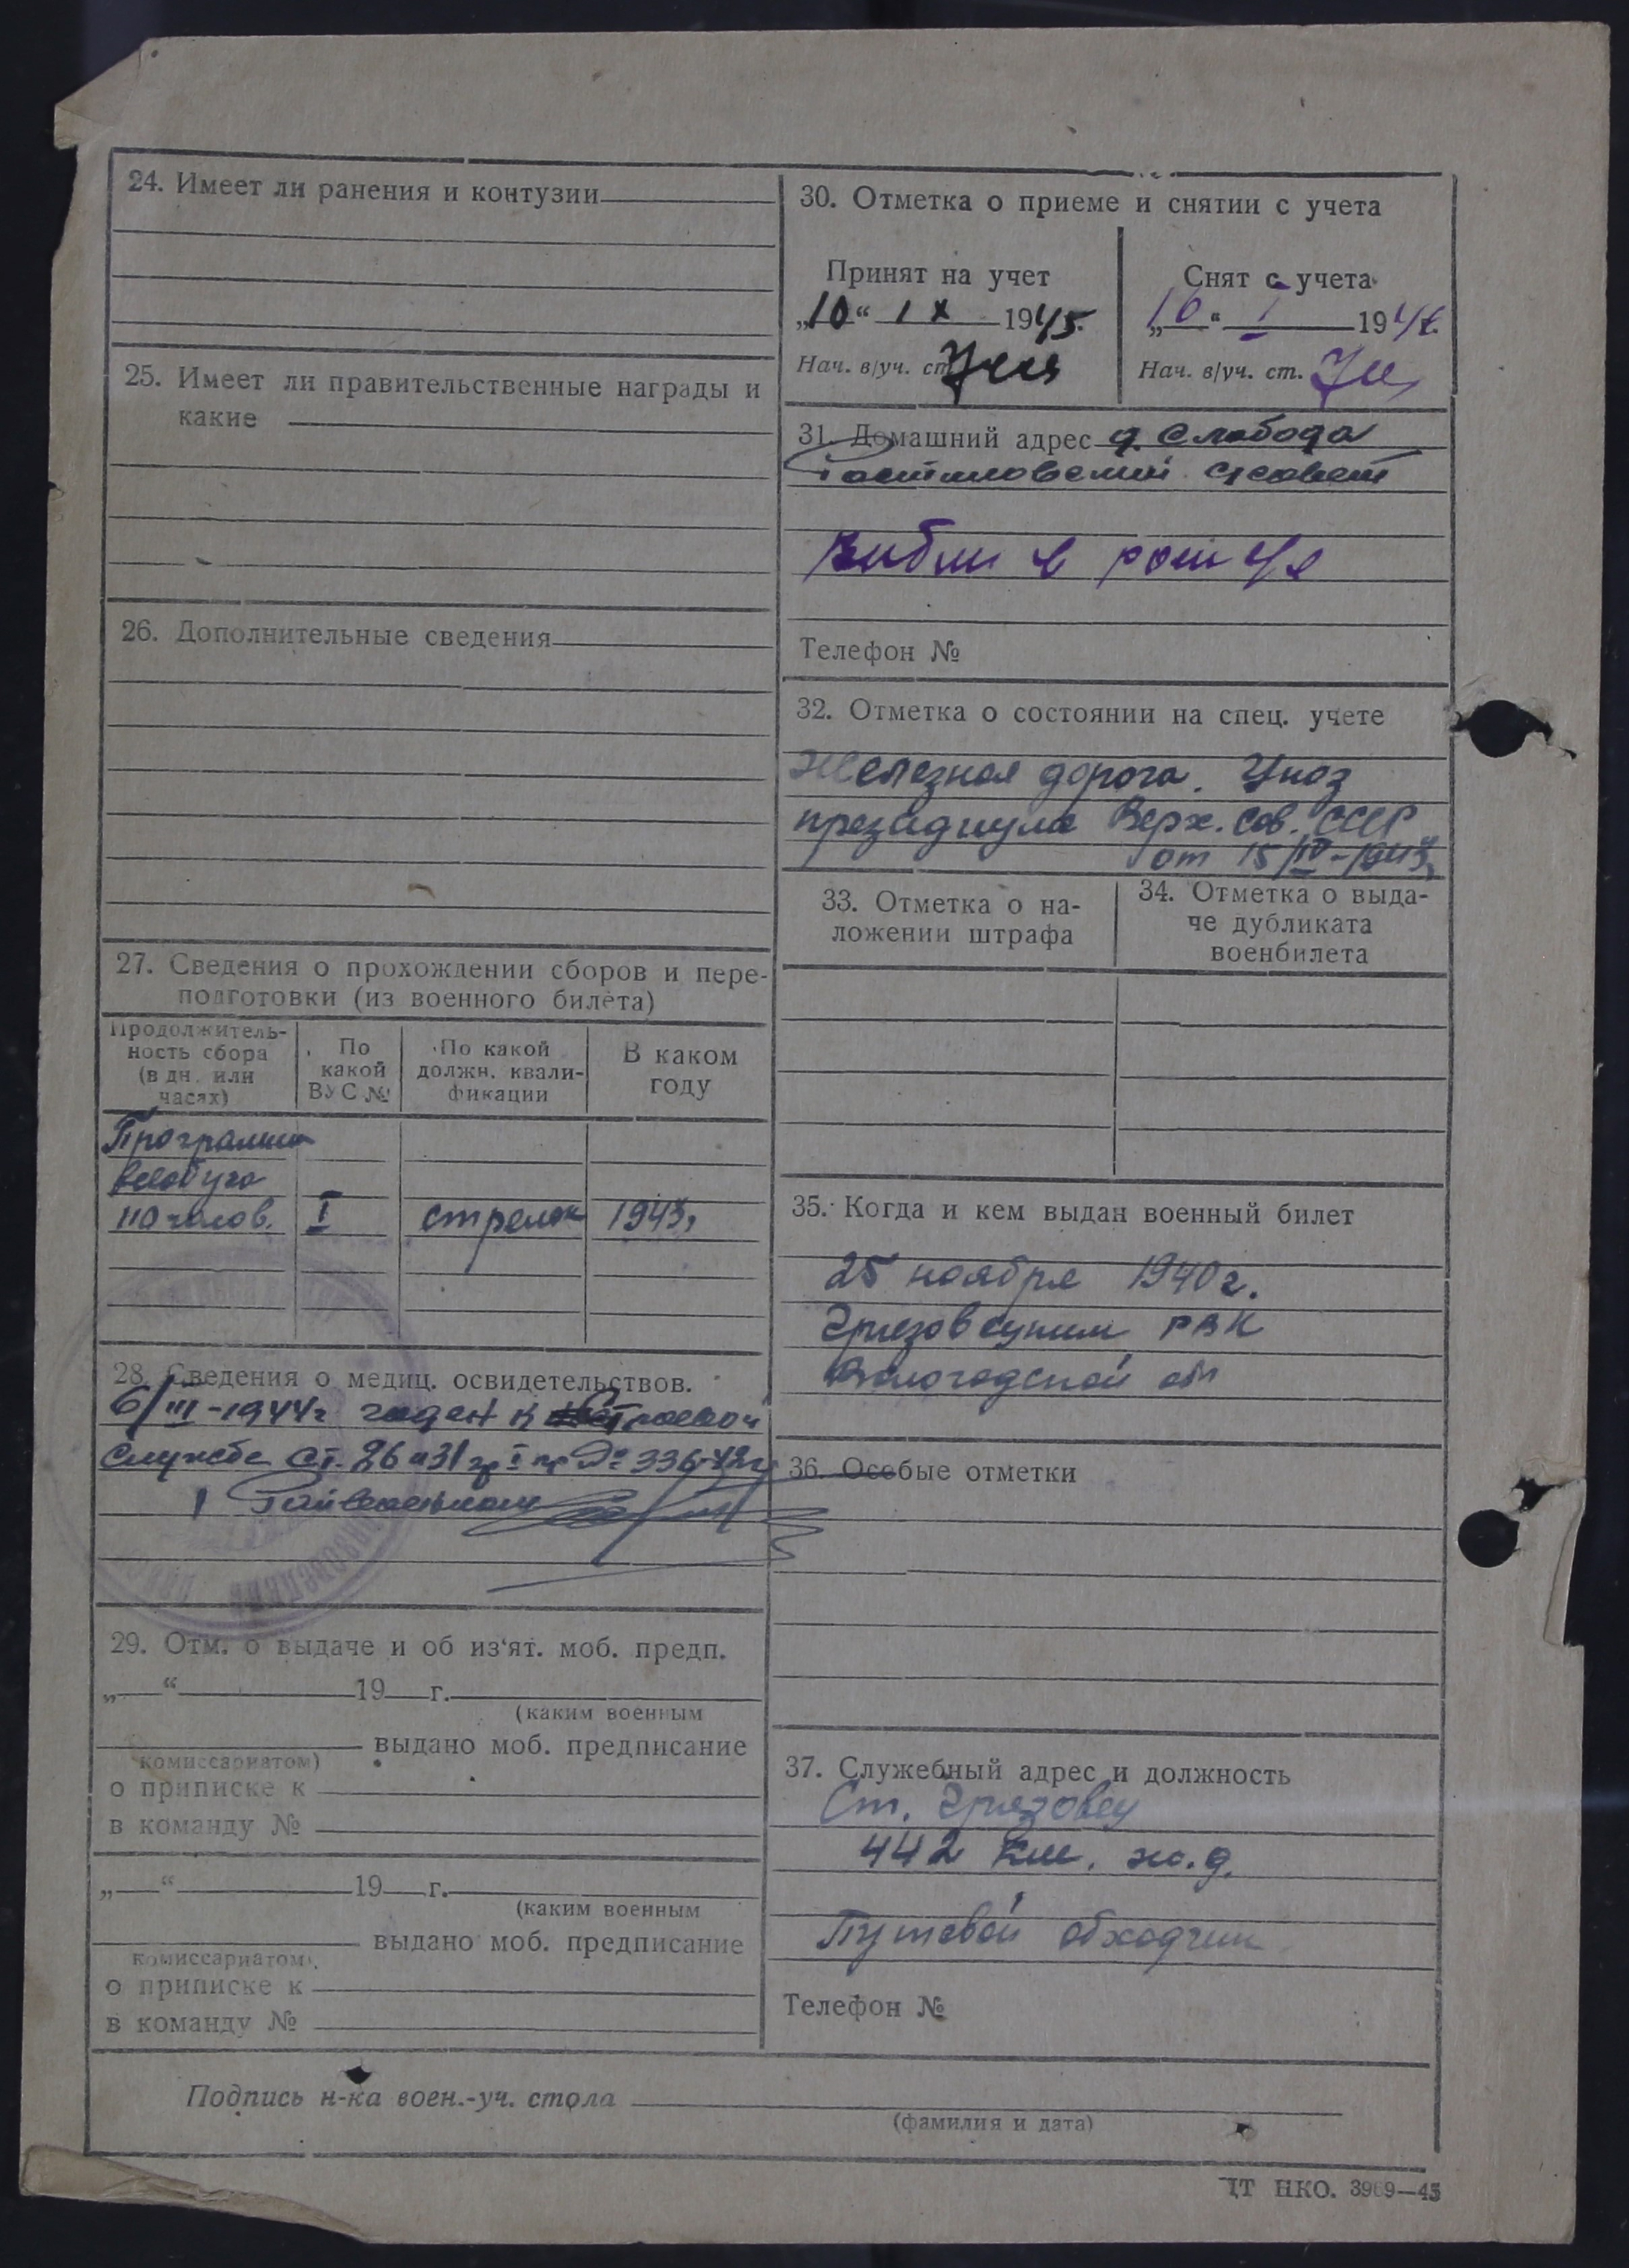 24. Имеет ли ранения и контузии
25. Имеет ли правительственные награды и
какие
26. Дополнительные сведения
27. Сведения о прохождении сборов и пере-
подготовки (из военного билета)
Продолжитель-
ность сбора
(в дн. или
часах)
По
какой
ВУС №
По какой
должн. квали-
фикации
В каком
году
Программа
всеобуча
110 часов. I стрелок 1943г
28. Сведения о медиц. освидетельствов.
6/III-1944г годен к строевой
службе ст. 26 и 31 гр I пр № 336-42г
29. Отм. о выдаче и об из‘ят. моб. предп.
„ “ 19 г.
(каким военным
выдано моб. предписание
комиссариатом)
о приписке к
в команду №
„ “ 19 г.
(каким военным
выдано моб. предписание
комиссариатом)
о приписке к
в команду №
30. Отметка о приеме и снятии с учета
Принят на учет
„10“ IX 1945.
Нач. в/уч. ст.
Снят с учета
„10“ I 194
Нач. в/уч. ст.
31. Домашний адрес д. Слобода
Ростиловский с/совет
Телефон №
32. Отметка о состоянии на спец. учете
Железная дорога. Указ
президиума Верх. Сов. СССР
от 15/IV-1943г
33. Отметка о на-
ложении штрафа
34. Отметка о выда-
че дубликата
военбилета
35. Когда и кем выдан военный билет
25 ноября 1940г.
Грязовецким РВК
Вологодской обл
36. Особые отметки
37. Служебный адрес и должность
Ст. Грязовец
442 км. ж.д.
Путевой обходчик
Телефон №
Подпись н-ка воен.-уч. стола
(фамилия и дата)
ЦТ НКО. 3969—45